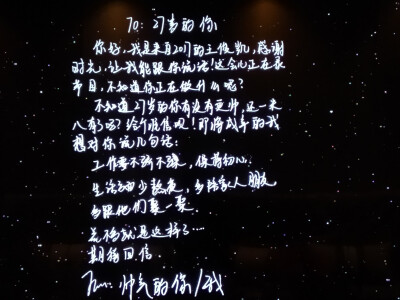 To：27岁的你
你好，我是来自2017的王俊凯，感谢
时光，让我能跟你说话！这会儿正在录
节目，不知道你正在做什么呢？
不知道27岁的你有没有更帅，还一米
八有了吗？给个准信呗！即将成年的我
想对你说几句话：
工作要不骄不躁，保持初心.
生活要少熬夜，多陪家人朋友
多跟他们聚一聚.
差不多就是这样了…
期待回信.
帅气的你/我